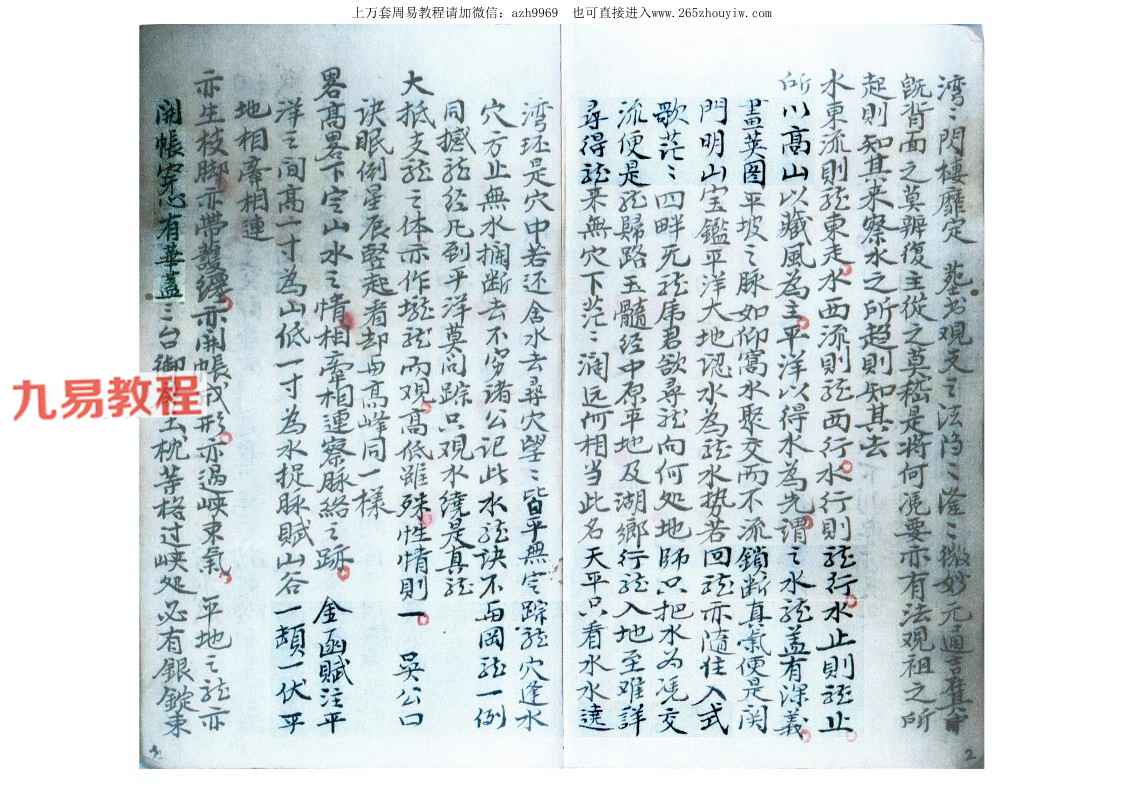 上万套周易教程请加微信：azh9969　也可直接进入www.265zhouyiw.com
湾湾閃樓靡定　葬书观支之法隐隐隆隆微妙元通吉在其中
既背面之莫辨復主從之莫嵇是將何凴要亦有法观祖之所
起則知其来察水之所趋則知其去
水東流則龍東走水西流則龍西行水行則龍行水止則龍止
所以高山以藏風為主平洋以得水為先謂之水龍盖有深義
畫英图平坡之脉如仰窩水聚交而不流鎖断真氣便是関
門明山宝鑑平洋大地认水為龍水势若回龍亦隨住入式
歌茫茫四畔无龍虎君欲尋龍向何处地師只把水为凴交
流便是龍歸路玉髓經中原平地及湖鄉行龍入地至难詳
尋得龍来無穴下茫茫濶远何相当此名天平只看水水遶
湾环是穴中若还舍水去尋穴望望皆平無定踪龍穴逢水
穴方止無水攔断去不穷诸公记此水龍訣不與岡龍一例
同撼龍经凡到平洋莫问踪只观水繞是真龍
大抵支龍之体亦作壠龍而观高低雖殊性情則一　吳公口
诀眠倒星辰竪起看却與高峰同一樣
畧高畧下定山水之情相牽相連察脉絡之跡　金函賦注平
洋之间高一寸為山低一寸為水捉脉賦山谷一顛一伏平
地相牽相連
亦生枝脚亦帶護纏亦開帳成形亦過峡束氣　平地之龍亦
開帳穿心有華盖三台御　玉枕等格过峡处必有銀錠束
九易教程
2